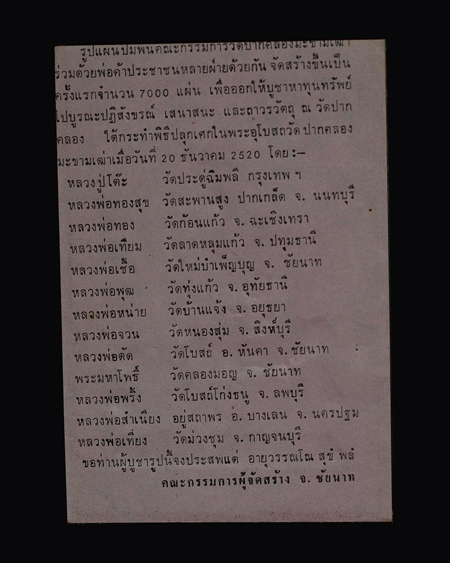 รูปแผ่นปั๊มพ่นคณะกรรมการวัดปากคลองมะขามเฒ่า
ร่วมด้วยพ่อค้าประชาชนหลายฝ่ายด้วยกัน จัดสร้างขึ้นเป็น
ครั้งแรกจำนวน 7000 แผ่น เพื่อออกให้บูชาหาทุนทรัพย์
ไปบูรณะปฏิสังขรณ์ เสนาสนะ และถาวรวัตถุ ณ วัดปาก
คลอง ได้กระทำพิธีปลุกเศกในพระอุโบสถวัดปากคลอง
มะขามเฒ่าเมื่อวันที่ 20 ธันวาคม 2520 โดย :—
หลวงปู่โต๊ะ วัดประดู่ฉิมพลี กรุงเทพ ฯ
หลวงพ่อทองสุข วัดสะพานสูง ปากเกล็ด จ. นนทบุรี
หลวงพ่อทอง วัดก้อนแก้ว จ. ฉะเชิงเทรา
หลวงพ่อเทียม วัดลาดหลุมแก้ว จ. ปทุมธานี
หลวงพ่อเชื้อ วัดใหม่บำเพ็ญบุญ จ. ชัยนาท
หลวงพ่อพุฒ วัดทุ่งแก้ว จ. อุทัยธานี
หลวงพ่อหน่าย วัดบ้านแจ้ง จ. อยุธยา
หลวงพ่อจวน วัดหนองสุ่ม จ. สิงห์บุรี
หลวงพ่อดัด วัดโบสถ์ อ. หันคา จ. ชัยนาท
พระมหาโพธิ์ วัดคลองมอญ จ. ชัยนาท
หลวงพ่อพริ้ง วัดโบสถ์โก่งธนู จ. ลพบุรี
หลวงพ่อสำเนียง อยู่สถาพร อ. บางเลน จ. นครปฐม
หลวงพ่อเที่ยง วัดม่วงชุม จ. กาญจนบุรี
ขอท่านผู้บูชารูปนี้จงประสพแต่ อายุวรรณโณ สุขํ พลํ
คณะกรรมการผู้จัดสร้าง จ. ชัยนาท